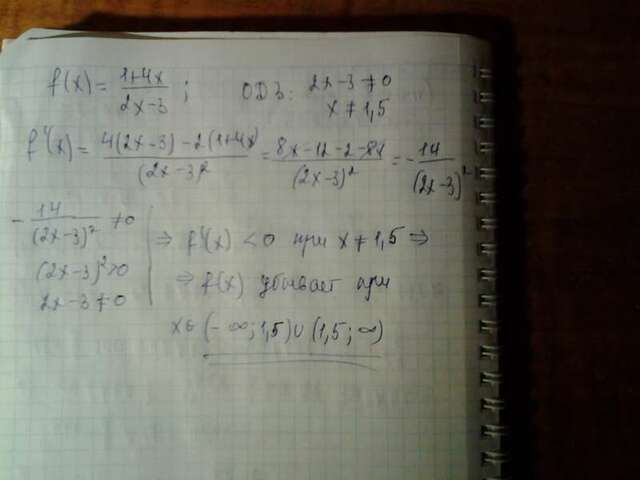 f(x) = (1+4x)/(2x-3) ; ОДЗ: 2x-3≠0
x≠1,5
f'(x) = (4(2x-3)-2(1+4x))/(2x-3)² = (8x-12-2-8x)/(2x-3)² = -14/(2x-3)²
-14/(2x-3)² ≠0
(2x-3)²>0
2x-3≠0
⇒ f'(x) <0 при x≠1,5 ⇒
⇒ f(x) убывает при
x∈ (-∞;1,5)∪(1,5;∞)